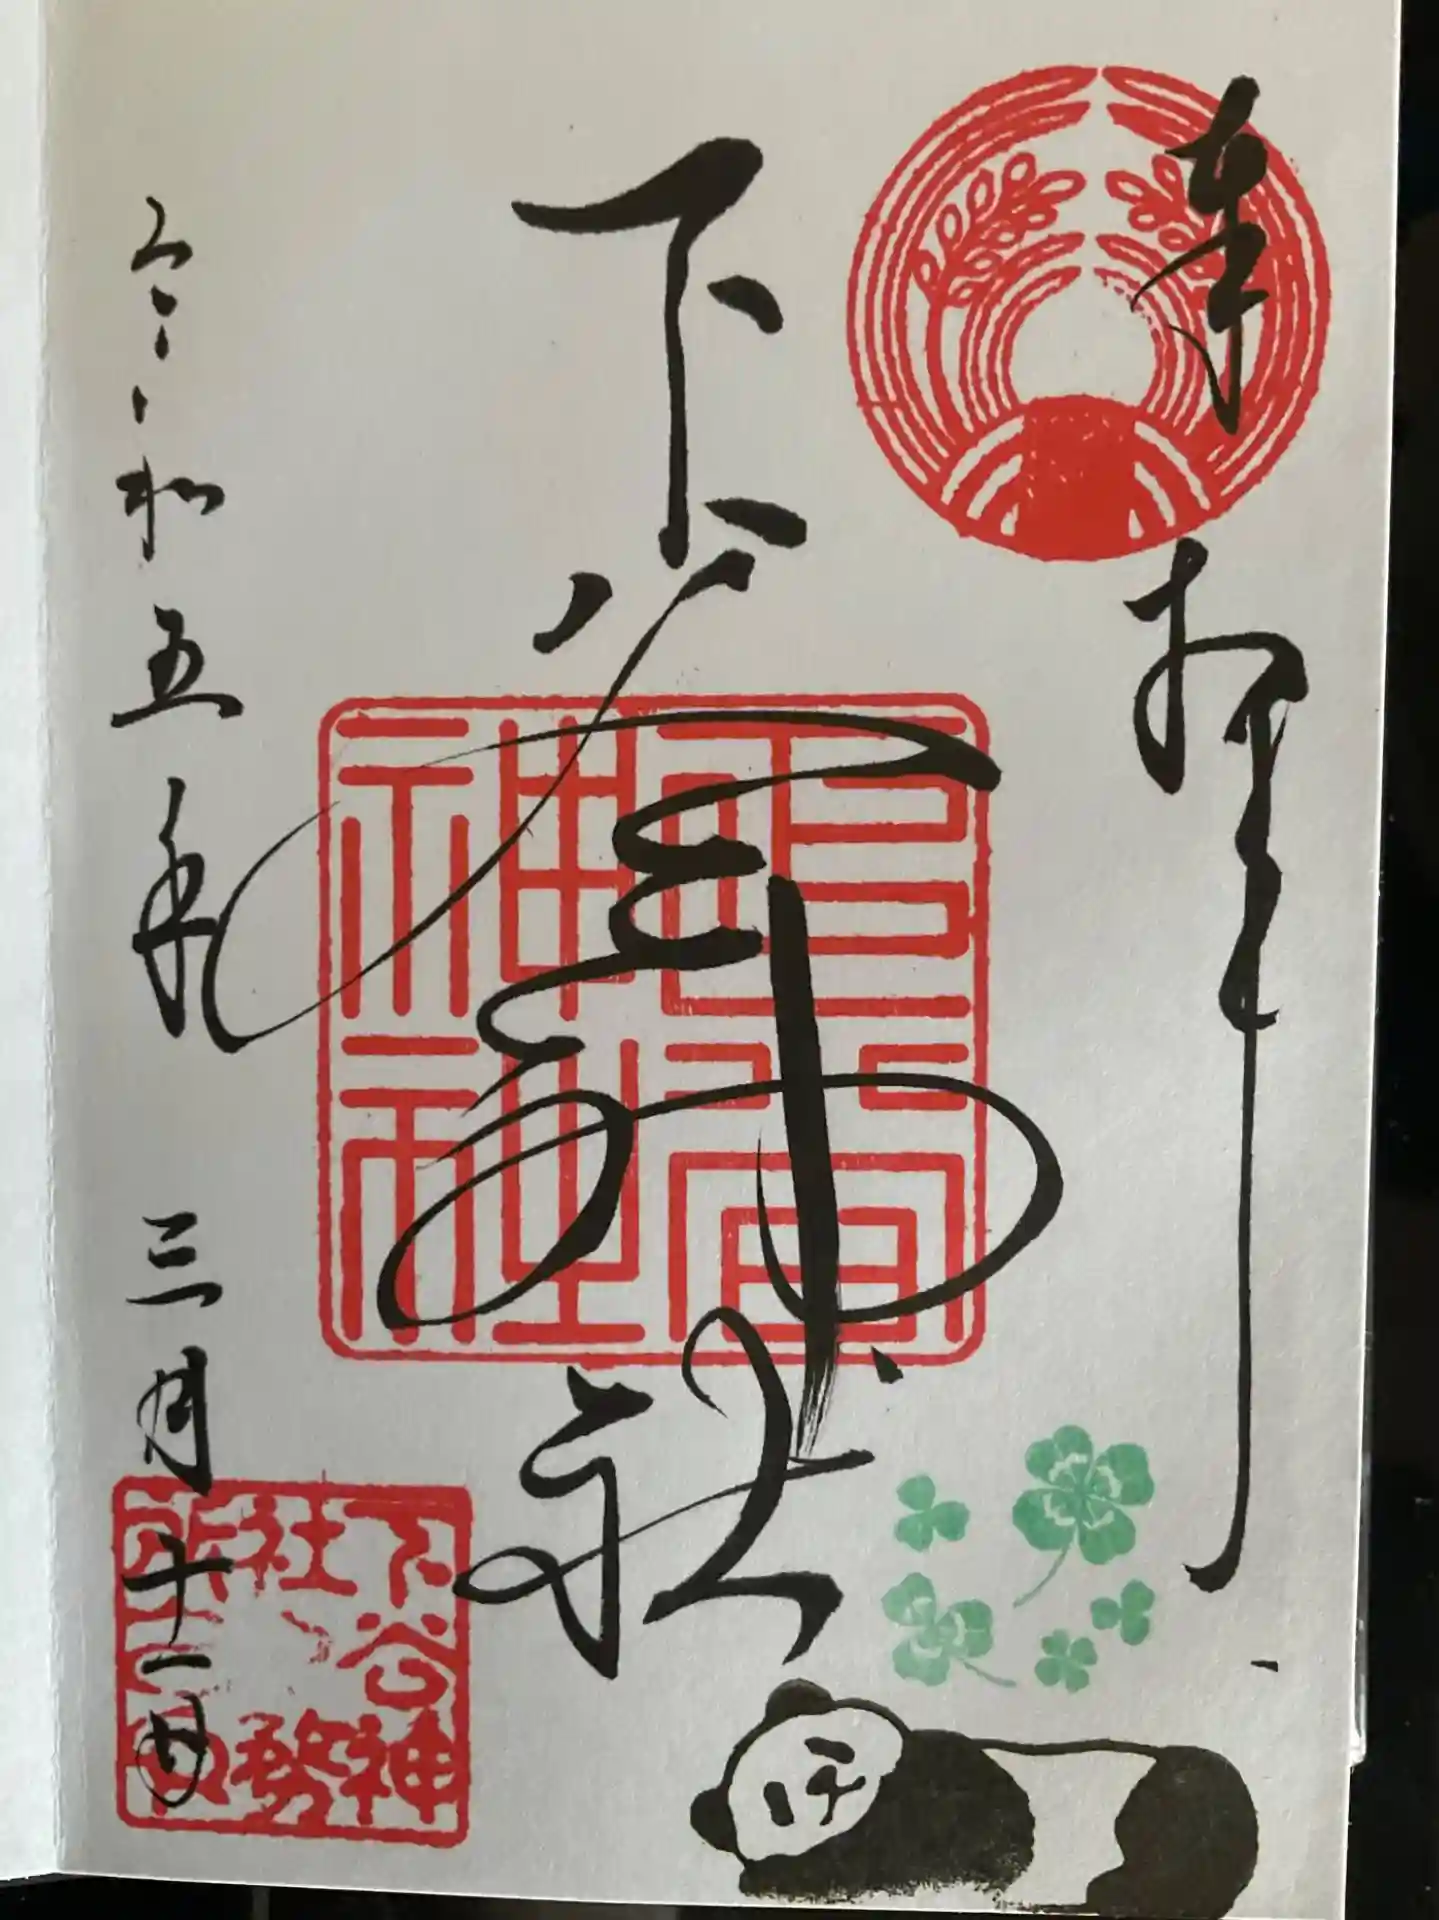 奉拝
下谷神社
令和五年三月十二日
下谷神社社務所之印